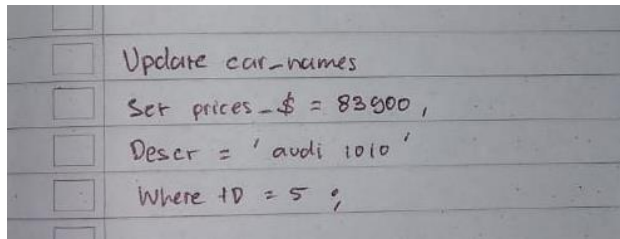 Update car_names
Set prices_$ = 83900,
Descr = 'audi 1010'
Where ID = 5 ;